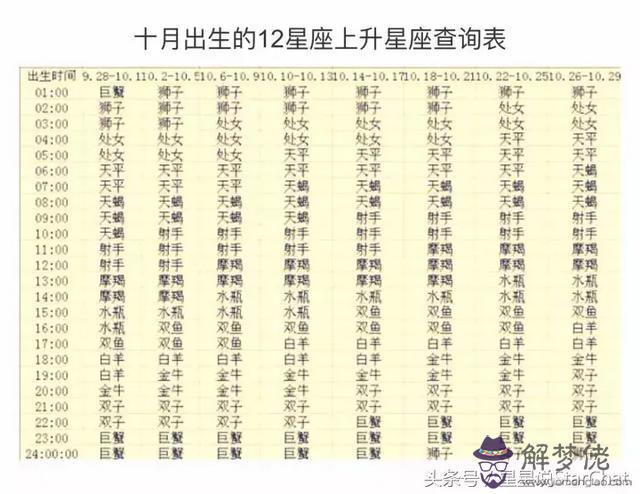 十月出生的12星座上升星座查询表
出生时间 9.28-10.1 10.2-10.5 10.6-10.9 10.10-10.13 10.14-10.17 10.18-10.21 10.22-10.25 10.26-10.29
01:00 巨蟹 狮子 狮子 狮子 狮子 狮子 狮子 狮子
02:00 狮子 狮子 狮子 狮子 狮子 狮子 处女 处女
03:00 狮子 狮子 处女 处女 处女 处女 处女 处女
04:00 处女 处女 处女 处女 处女 处女 天平 天平
05:00 处女 处女 处女 天平 天平 天平 天平 天平
06:00 天平 天平 天平 天平 天平 天平 天平 天蝎
07:00 天平 天平 天平 天蝎 天蝎 天蝎 天蝎 天蝎
08:00 天蝎 天蝎 天蝎 天蝎 天蝎 天蝎 天蝎 天蝎
09:00 天蝎 天蝎 天蝎 天蝎 射手 射手 射手 射手
10:00 天蝎 射手 射手 射手 射手 射手 射手 射手
11:00 射手 射手 射手 射手 射手 摩羯 摩羯 摩羯
12:00 射手 射手 摩羯 摩羯 摩羯 摩羯 摩羯 摩羯
13:00 摩羯 摩羯 摩羯 摩羯 摩羯 水瓶 水瓶 水瓶
14:00 摩羯 摩羯 水瓶 水瓶 水瓶 水瓶 水瓶 水瓶
15:00 水瓶 水瓶 水瓶 水瓶 双鱼 双鱼 双鱼 双鱼
16:00 水瓶 双鱼 双鱼 双鱼 双鱼 双鱼 双鱼 白羊
17:00 双鱼 双鱼 双鱼 白羊 白羊 白羊 白羊 白羊
18:00 白羊 白羊 白羊 白羊 白羊 金牛 金牛 金牛
19:00 白羊 金牛 金牛 金牛 金牛 金牛 金牛 双子
20:00 金牛 金牛 金牛 金牛 双子 双子 双子 双子
21:00 双子 双子 双子 双子 双子 双子 双子 双子
22:00 双子 双子 双子 双子 巨蟹 巨蟹 巨蟹 巨蟹
23:00 巨蟹 巨蟹 巨蟹 巨蟹 巨蟹 巨蟹 巨蟹 巨蟹
24:00:00 巨蟹 巨蟹 巨蟹 巨蟹 巨蟹 狮子
头条号 StarChat
解梦佬
www.jiemenglao.com